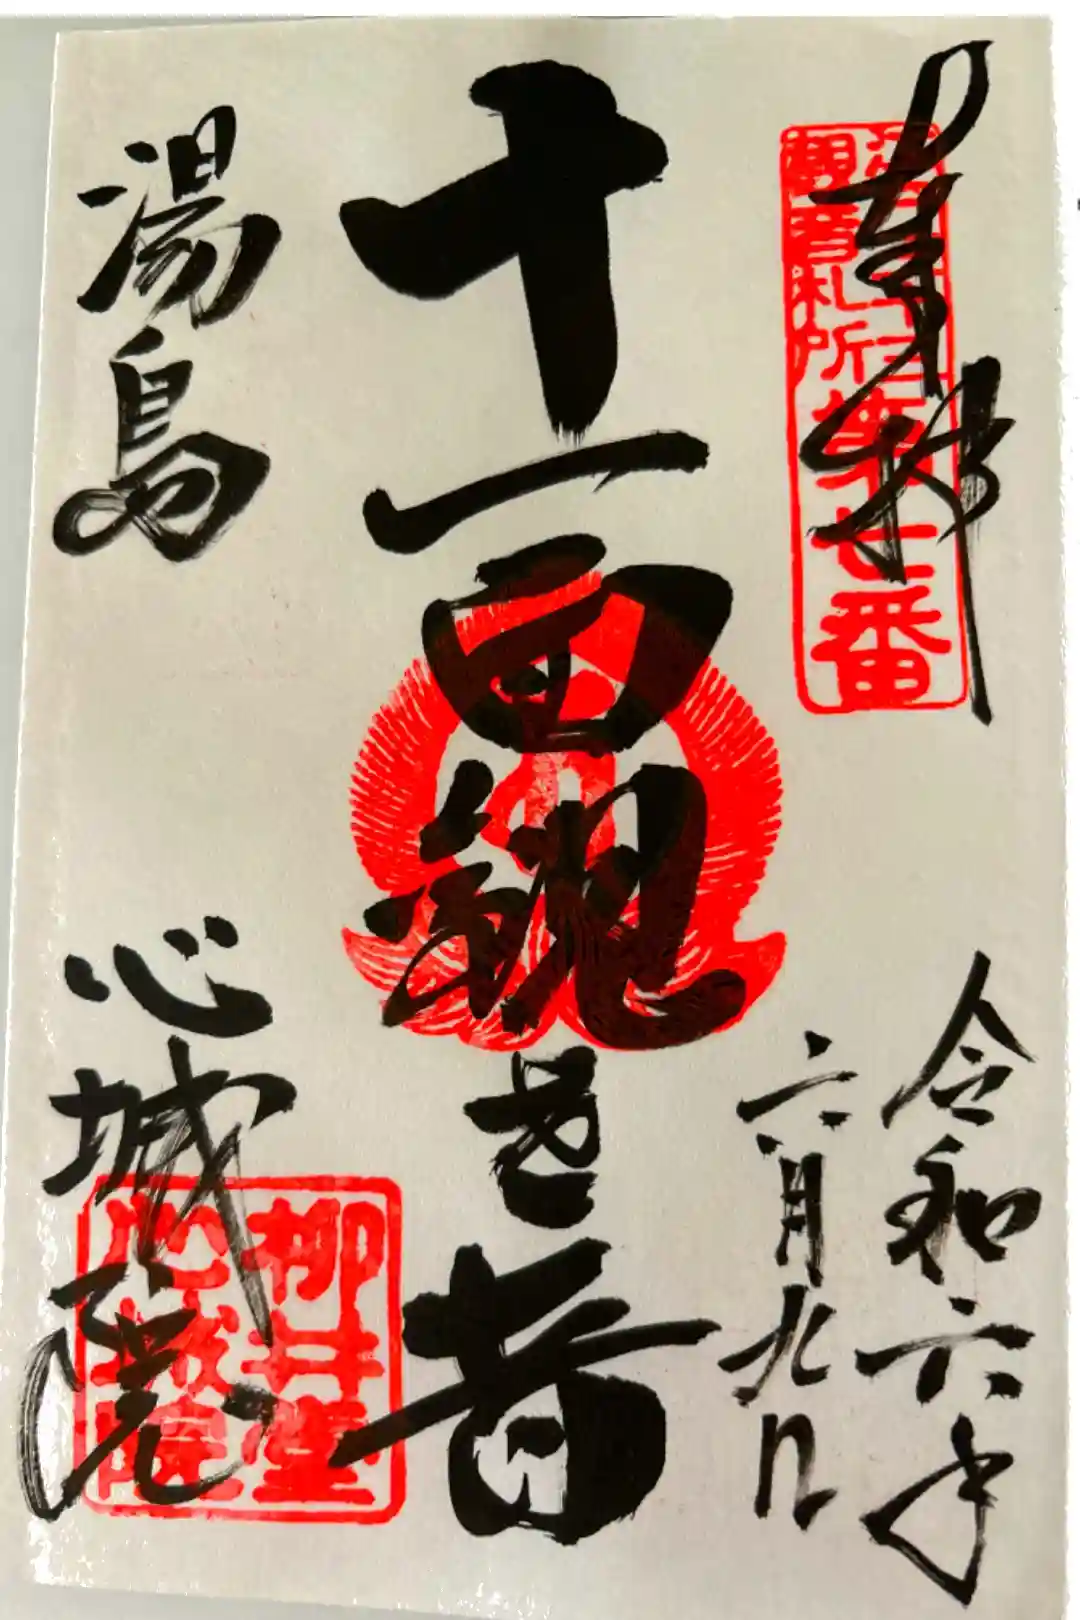 奉拝
江戸三十三
観音札所第七番
令和六年
六月九日
十一面観世音
湯島
心城院
柳井堂
心城院